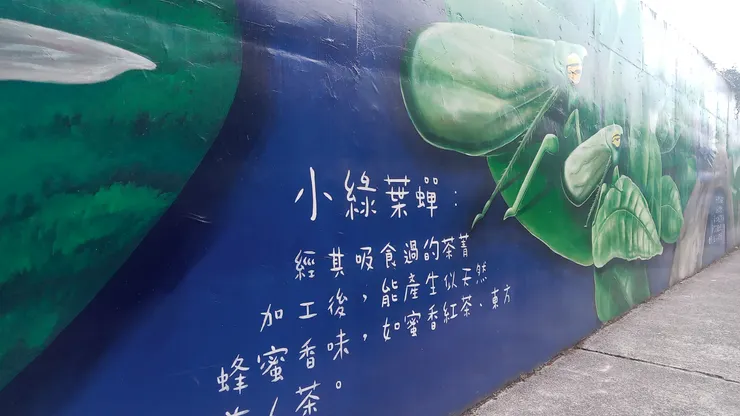 小綠葉蟬：
經其吸食過的茶菁
加工後，能產生似天然
蜂蜜香味，如蜜香紅茶、東方
美人茶。